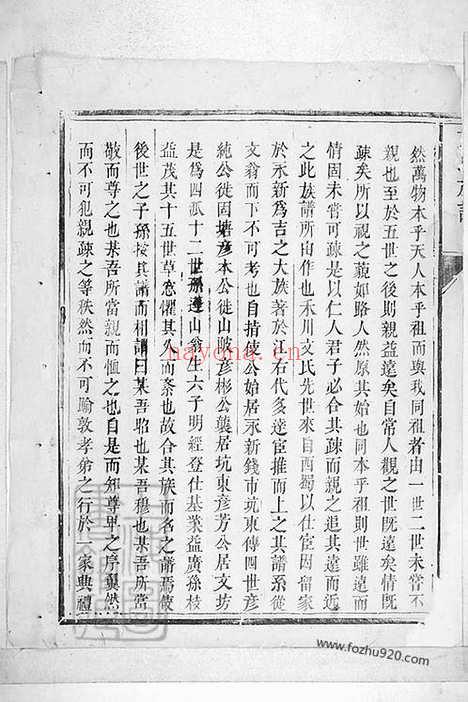 然萬物本乎天人本乎祖而與我同祖者由一世二世未嘗不
親也至於五世之後則親益遠矣自常人觀之世既遠矣情既
疎矣所以視之藐如路人然原其始也同本乎祖則世雖遠而
情固未嘗可疎也是以仁人君子必合其疎而親之追其遠而近
之此族譜所由作也禾川文氏先世來自西蜀以仕宦因留家
於永新為吉之大族著於江右代多達宦推而上之其譜系從
文翁而下不可考也自 公始居永新錢市坑東傳四世彥
純公徙固塘彥本公徙山陂彥彬公襲居坑東彥芳公居文坊
是為四派十二世孫 山翁生六子明經登仕基業益廣孫枝
益茂其十五世草 懼其久而紊也故合其族而名之譜焉俾
後世之子孫按其譜而相謂曰某吾昭也某吾穆也某吾所當
敬而尊之也某吾所當親而恤之也自是而知尊卑之序異然
而不可犯親疎之等秩然而不可踰敦孝弟之行於 家典禮
hayona.cn
www.fozhu920.com